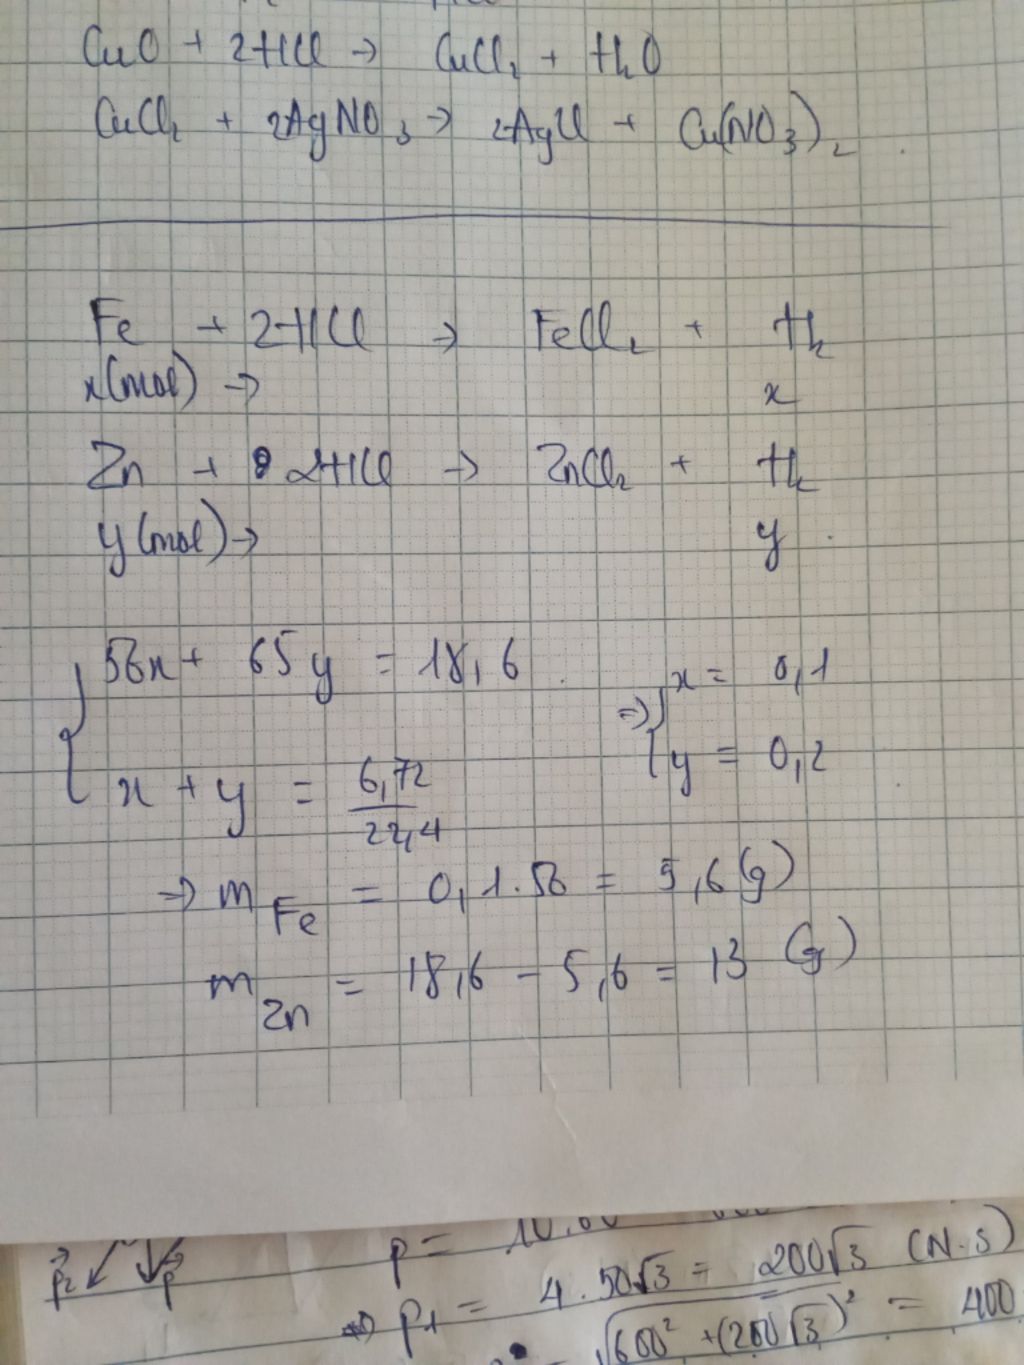 CuO + 2HCl → CuCl₂ + H₂O
CuCl₂ + 2AgNO₃ → 2AgCl + Cu(NO₃)₂
Fe + 2HCl → FeCl₂ + H₂
x(mol) → x
Zn + 2HCl → ZnCl₂ + H₂
y(mol) → y
56x + 65y = 18,6
⇒ x = 0,1
y = 0,2
x + y = 6,72 / 22,4
→ m Fe = 0,1.56 = 5,6 (g)
m Zn = 18,6 - 5,6 = 13 (g)
p₂ p p =
⇒ p₁ = 4.50√3 = 200√3 (N.s)
√600² + (200√3)² = 400